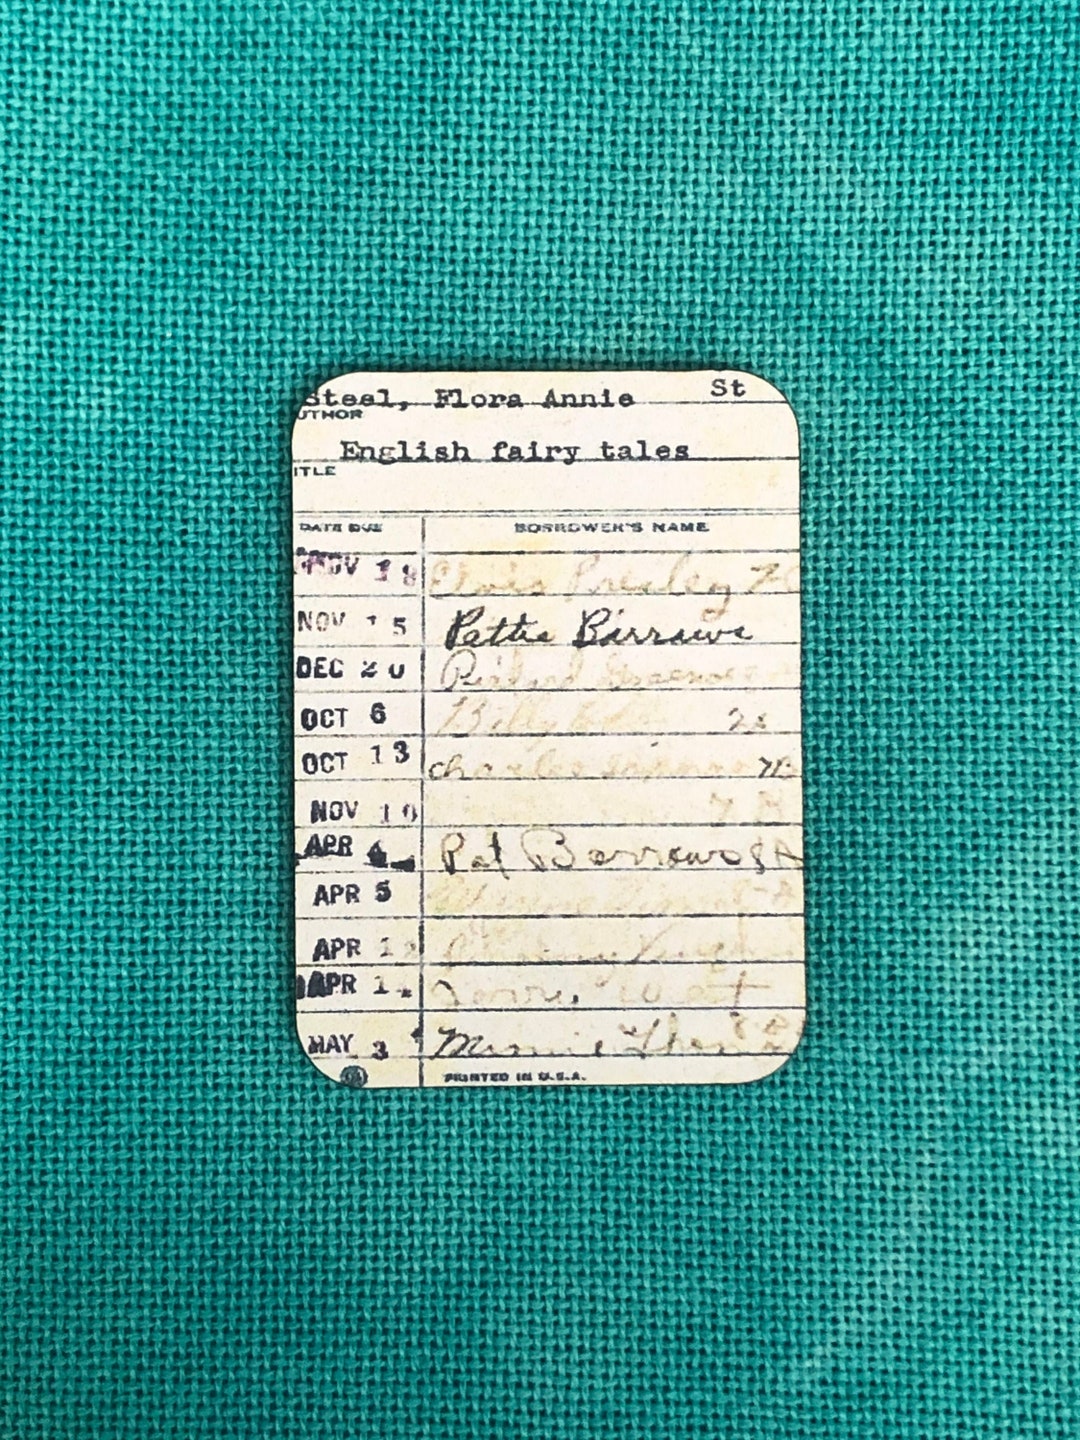 Steel, Flora Annie St
UTHOR
English fairy tales
ITLE
DATE DUE BORROWER'S NAME
NOV 18 Elvis Presley 7
NOV 15 Pattie Barrows
DEC 20 Richard
OCT 6 Billy
OCT 13 Charles 7B
NOV 10 7
APR Pat Barrows 8A
APR 5
APR 12
APR 1 West
MAY 3 Minnie
PRINTED IN U.S.A.